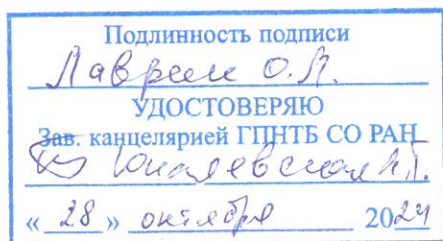 Подлинность подписи
Лаврик О.Л.
УДОСТОВЕРЯЮ
Зав. канцелярией ГПНТБ СО РАН
« 28 » октября 2024